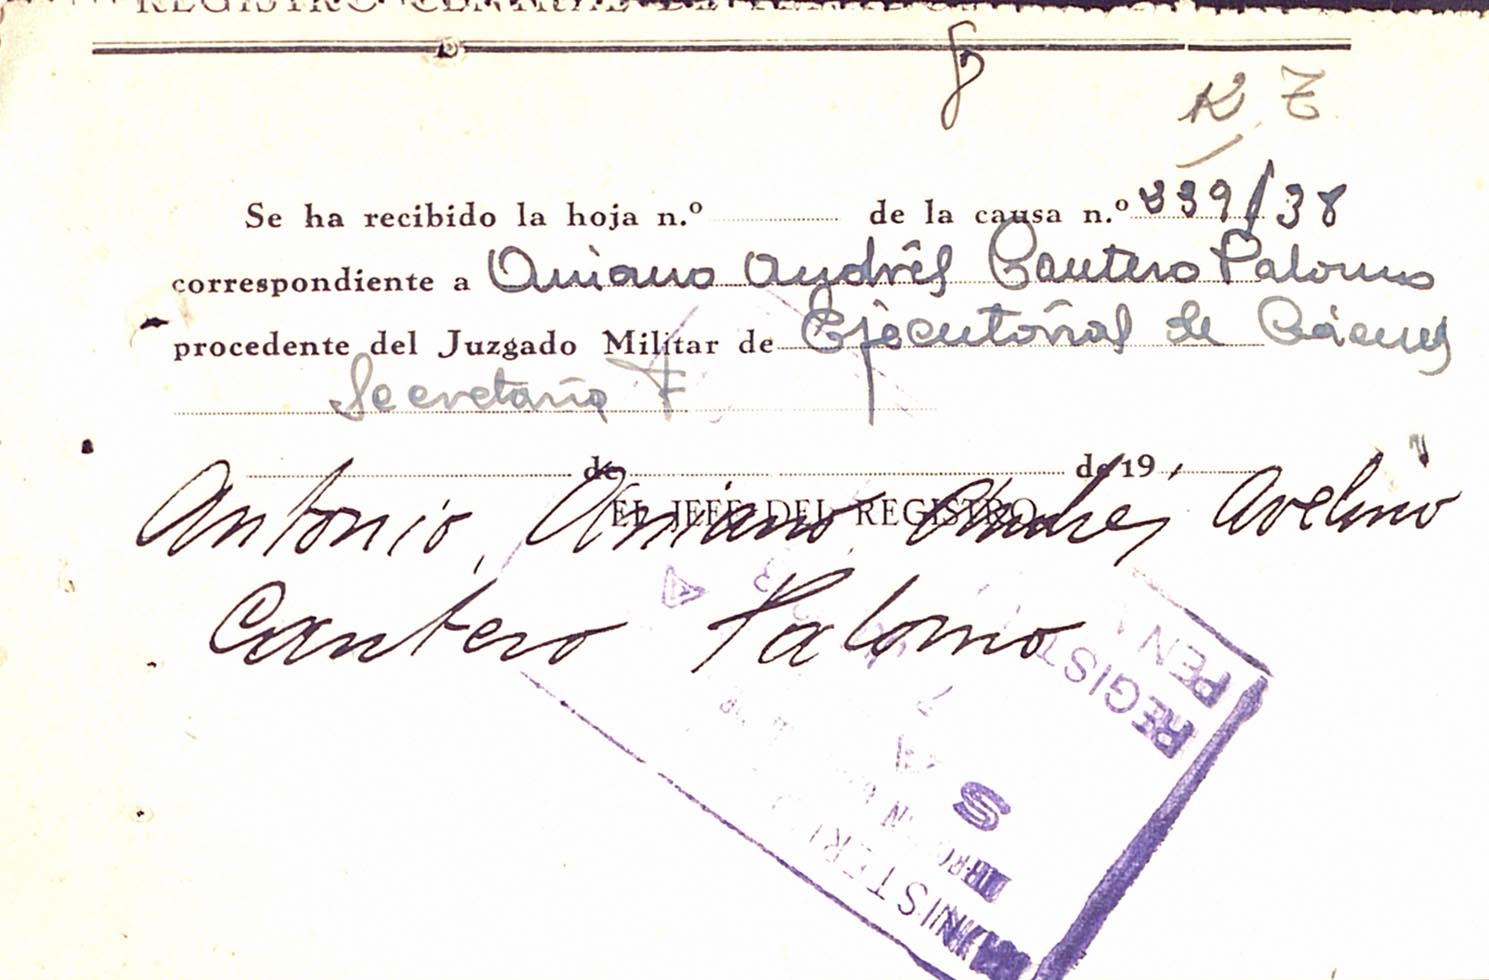 REGISTRO CENTRAL DE
K Z
Se ha recibido la hoja n.º de la causa n.º 339/38
correspondiente a Aniano Andrés Cantero Palomo
procedente del Juzgado Militar de Ejecutorias de Cáceres
Secretaría
de de 19
EL JEFE DEL REGISTRO
Antonio, Aniano, Andrés Avelino
Cantero Palomo
REGIST
PEN
S
MINISTERIO